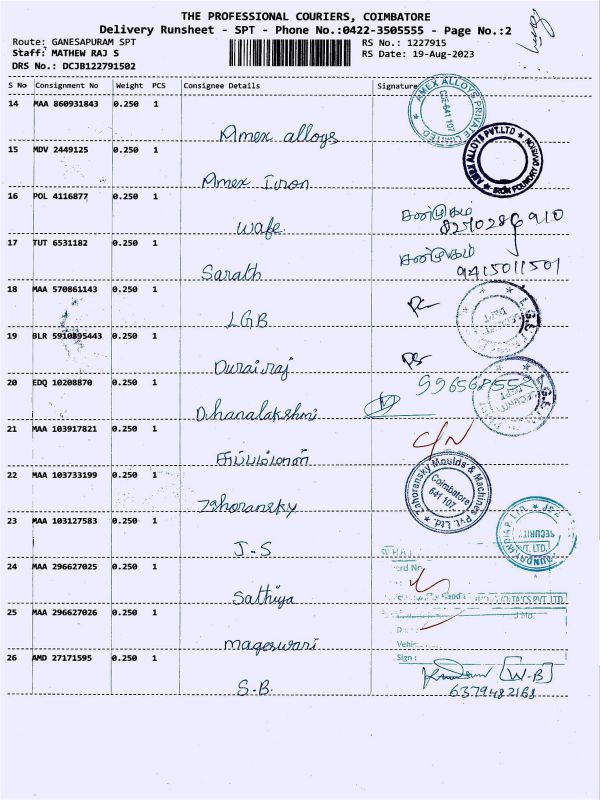 THE PROFESSIONAL COURIERS, COIMBATORE
Delivery Runsheet - SPT - Phone No.:0422-3505555 - Page No.:2
Route: GANESAPURAM SPT RS No.: 1227915
Staff: MATHEW RAJ S RS Date: 19-Aug-2023
DRS No.: DCJB122791502
S No Consignment No Weight PCS Consignee Details Signature
14 MAA 860931843 0.250 1
Amex alloys
AMEX ALLOYS PRIVATE LIMITED
CBE-641 107
15 MDV 2449125 0.250 1
Amex Iron
AMEX ALLOYS PVT.LTD
IRON FOUNDRY DIVISION
16 POL 4116877 0.250 1
Wafe சண்முகம்
17 TUT 6531182 0.250 1
Sarath சண்முகம்
9415011501
18 MAA 570861143 0.250 1
LGB
19 BLR 5910895443 0.250 1
Durairaj
20 EDQ 10208870 0.250 1
Dhanalakshmi
21 MAA 103917821 0.250 1
C/N
22 MAA 103733199 0.250 1
Zahoransky Moulds & Machines Pvt. Ltd.
Coimbatore
641 107.
23 MAA 103127583 0.250 1
J-S
SECURITY
PVT. LTD.
24 MAA 296627025 0.250 1
Sathiya
25 MAA 296627026 0.250 1
Mageswari
Sign :
26 AMD 27171595 0.250 1
S.B. W-B
6379482168